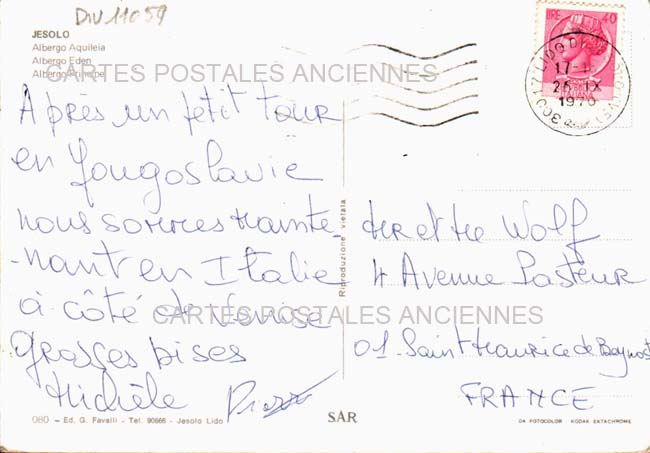 Div 11059
JESOLO
Albergo Aquileia
Albergo Eden
Albergo Principe
CARTES POSTALES ANCIENNES
LIRE 40
LIDO DI
17-
26 IX
1970
Après un petit tour
en Yougoslavie
nous sommes mainte-
-nant en Italie
à côté de Venise
Grosses bises
Michèle
Riproduzione vietata
Mr et Me Wolf
4 Avenue Pasteur
CARTES POSTALES ANCIENNES
01-Saint Maurice de Beynost
FRANCE
080 - Ed. G. Favalli - Tel. 90666 - Jesolo Lido
SAR
DA FOTOCOLOR KODAK EKTACHROME